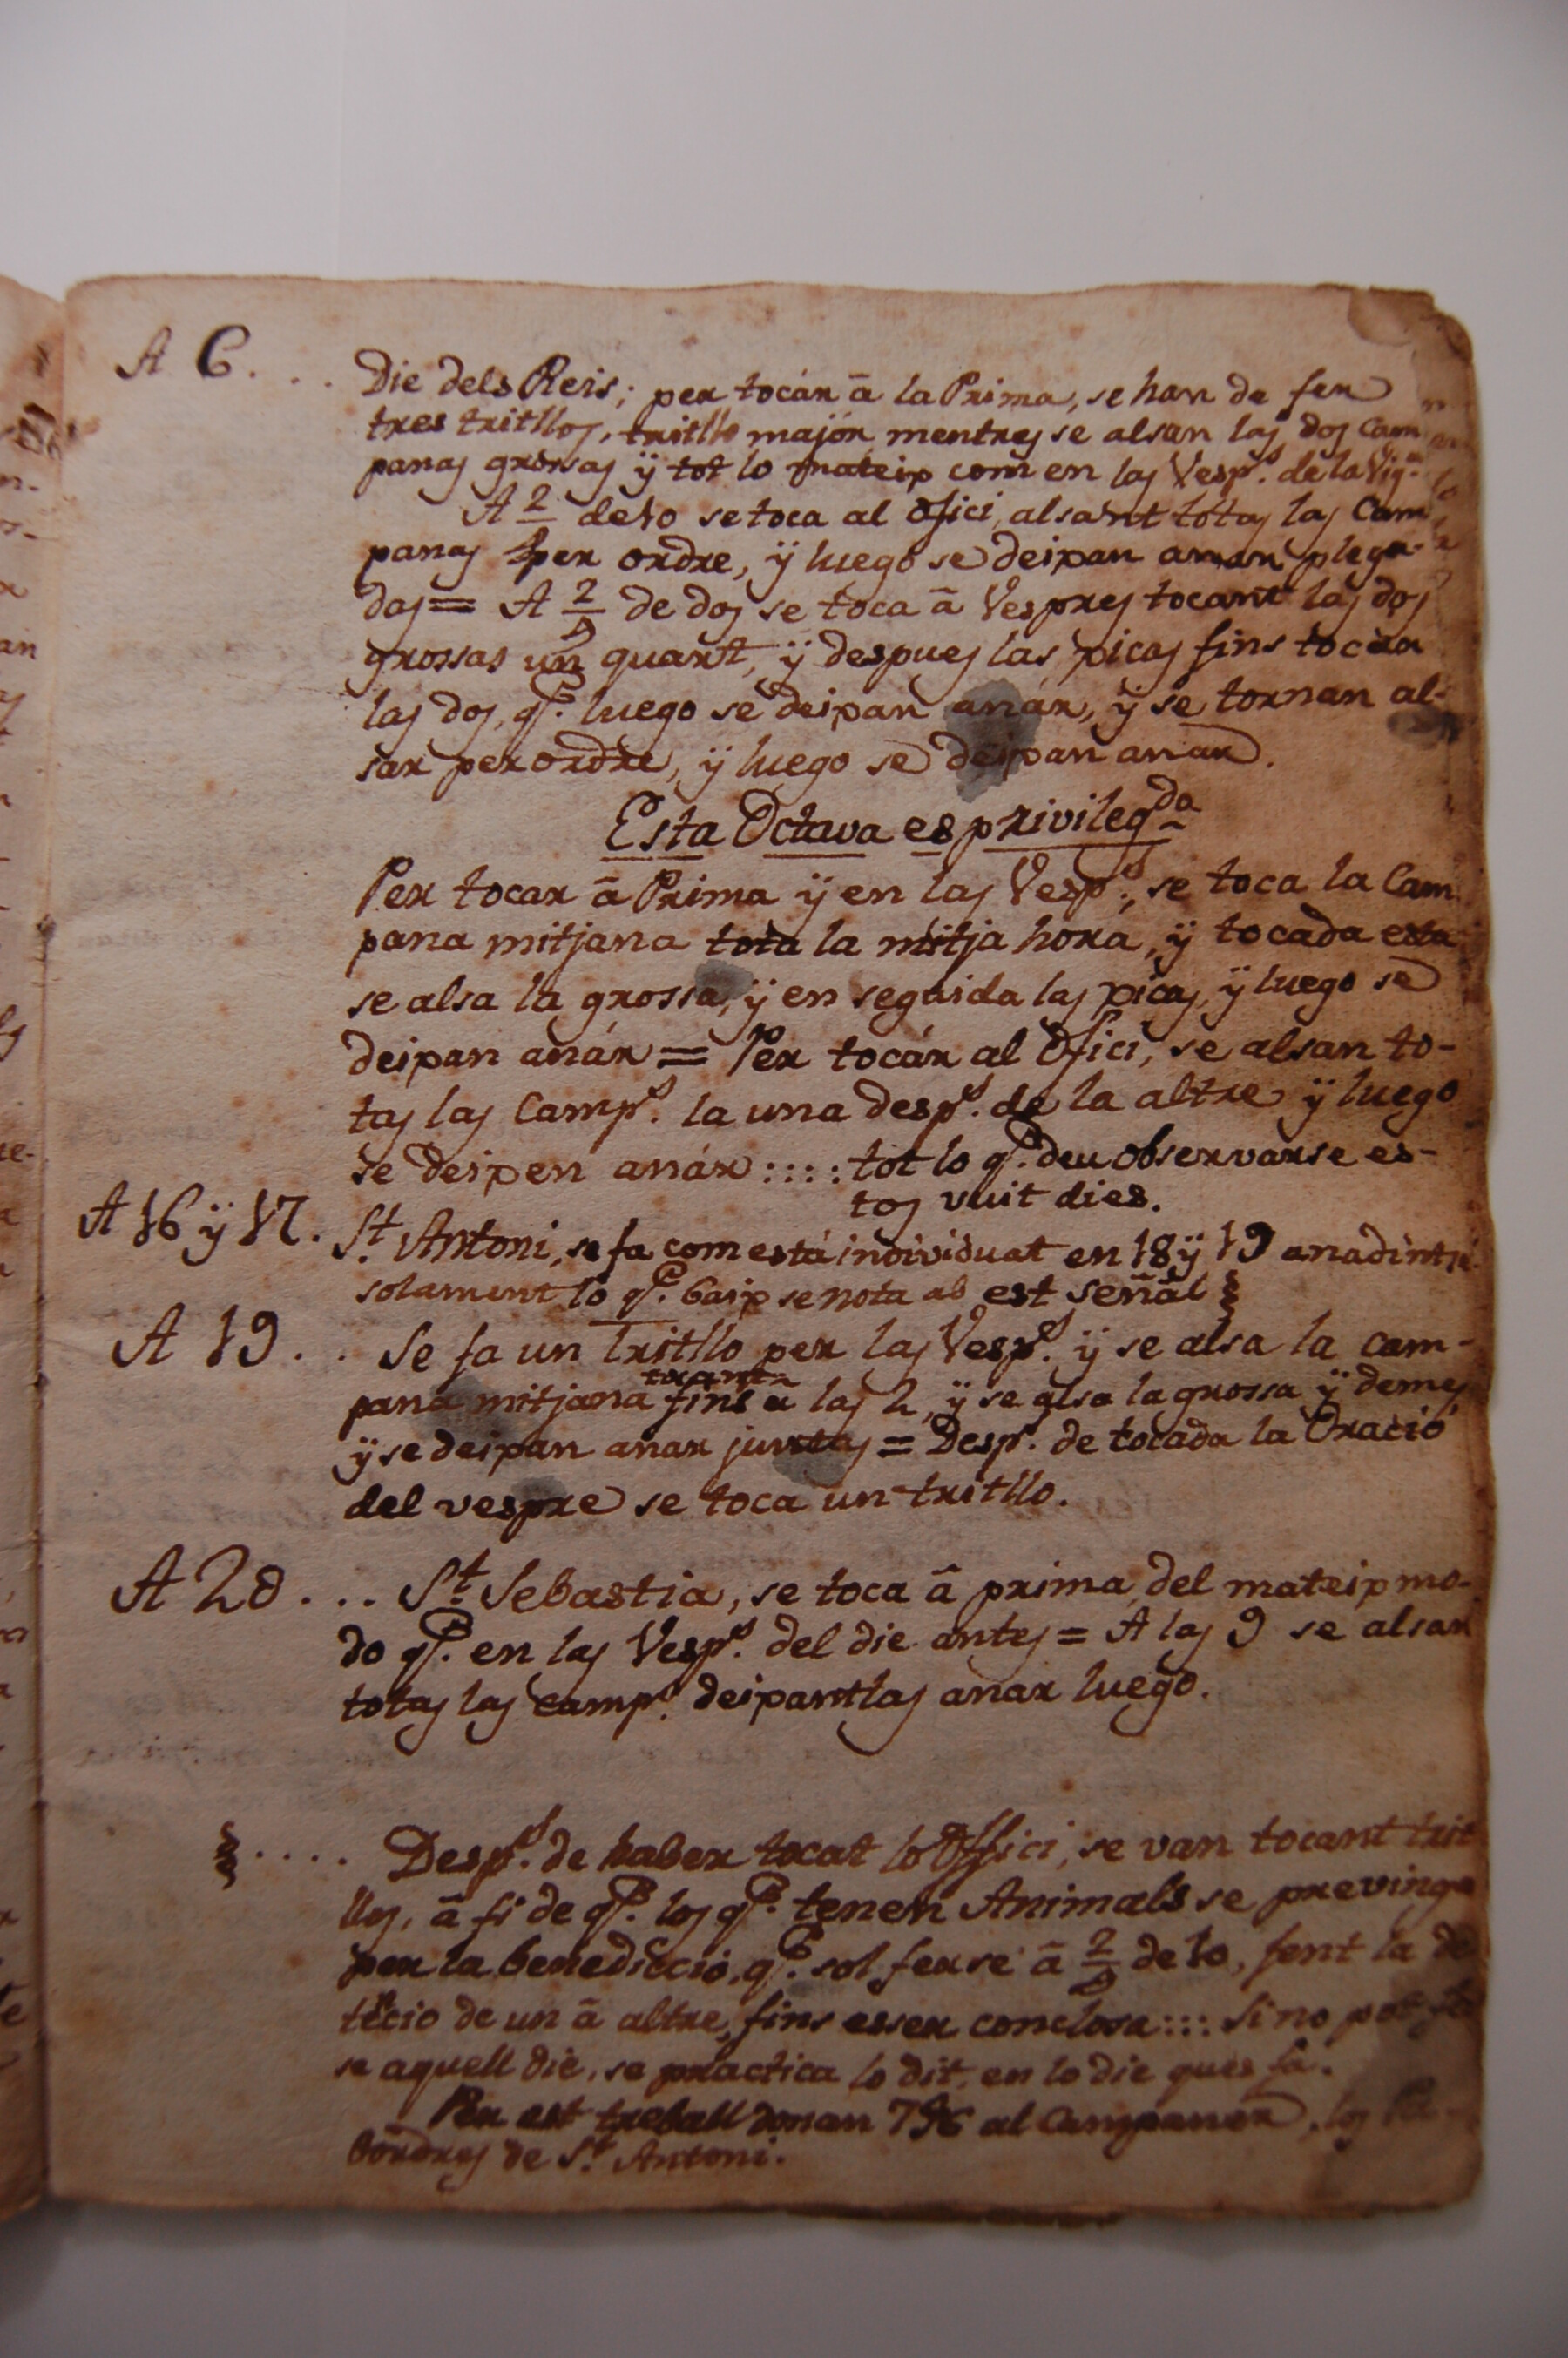 A 6. . . Die dels Reis; per tocár â la Prima, se han de fer
tres tritllos, tritllo majór mentres se alsan las dos Cam
panas grossas ÿ tot lo mateix com en las Vesp.s de la Vig.a
A 2/ de 10 se toca al Ofici, alsant totas las Cam
panas per ordre, ÿ luego se deixan anar plega-
das = A 2/4 de dos se toca â Vespres tocant las dos
grossas un quart, ÿ despues las picas fins tocar
las dos, q.e luego se deixan anár, ÿ se tornan al-
sar per ordre, ÿ luego se deixan anar.
Esta Octava es privileg.da
Per tocar â Prima ÿ en las Vesp.s, se toca la Cam
pana mitjana tota la mitja hora, ÿ tocada esta
se alsa la grossa, ÿ en seguida las picas, ÿ luego se
deixan anár = Per tocár al Ofici, se alsan to-
tas las Camp.s la una desp.s de la altre ÿ luego
se deixen anár :::: tot lo q.e deu observarse es-
tos vuit dies.
A 16 ÿ 17. S.t Antoni, se fa com está individuat en 18 ÿ 19 anadintsé
solament lo q.e baix se nota ab est señal §
A 19. . Se fa un tritllo per las Vesp.s ÿ se alsa la cam-
tocant
pana mitjana fins a las 2, ÿ se alsa la grossa ÿ demes
ÿ se deixan anar juntas = Desp.s de tocada la Oració
del vespre se toca un tritllo.
A 20. . . . S.t Sebastia, se toca â prima del mateix mo-
do q.e en las Vesp.s del die antes = A las 9 se alsan
totas las camp.s deixantlas anar luego.
§ . . . . Desp.s de haber tocat lo Offici, se van tocant trit
llos, â fi de q.e los q.e tenen Animals se previnga
per la benedicció, q.e sol ferse â 2/4 de 10, fent la de
tecio de un â altre, fins esser conclosa ::: Si no pot
se aquell die, se practica lo dit, en lo die ques fa.
Per est treball donan 7 al Campaner, los Pa-
bordres de S.t Antoni.